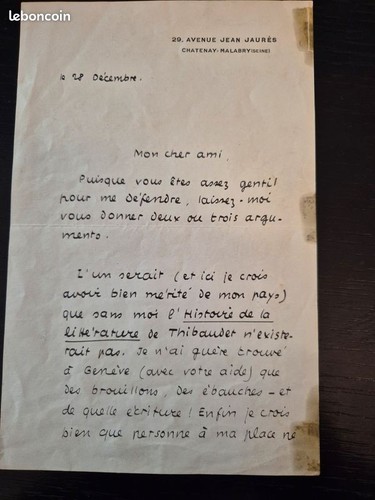 leboncoin
20. AVENUE JEAN JAURÈS
CHATENAY-MALABRY (SEINE)
le 28 Décembre.
Mon cher ami,
Puisque vous êtes assez gentil
pour me défendre, laissez-moi
vous donner deux ou trois argu-
ments.
L'un serait (et ici je crois
avoir bien mérité de mon pays)
que sans moi l'Histoire de la
littérature de Thibaudet n'existe-
rait pas. Je n'ai guère trouvé
à Genève (avec votre aide) que
des brouillons, des ébauches - et
de quelle écriture ! Enfin je crois
bien que personne à ma place ne